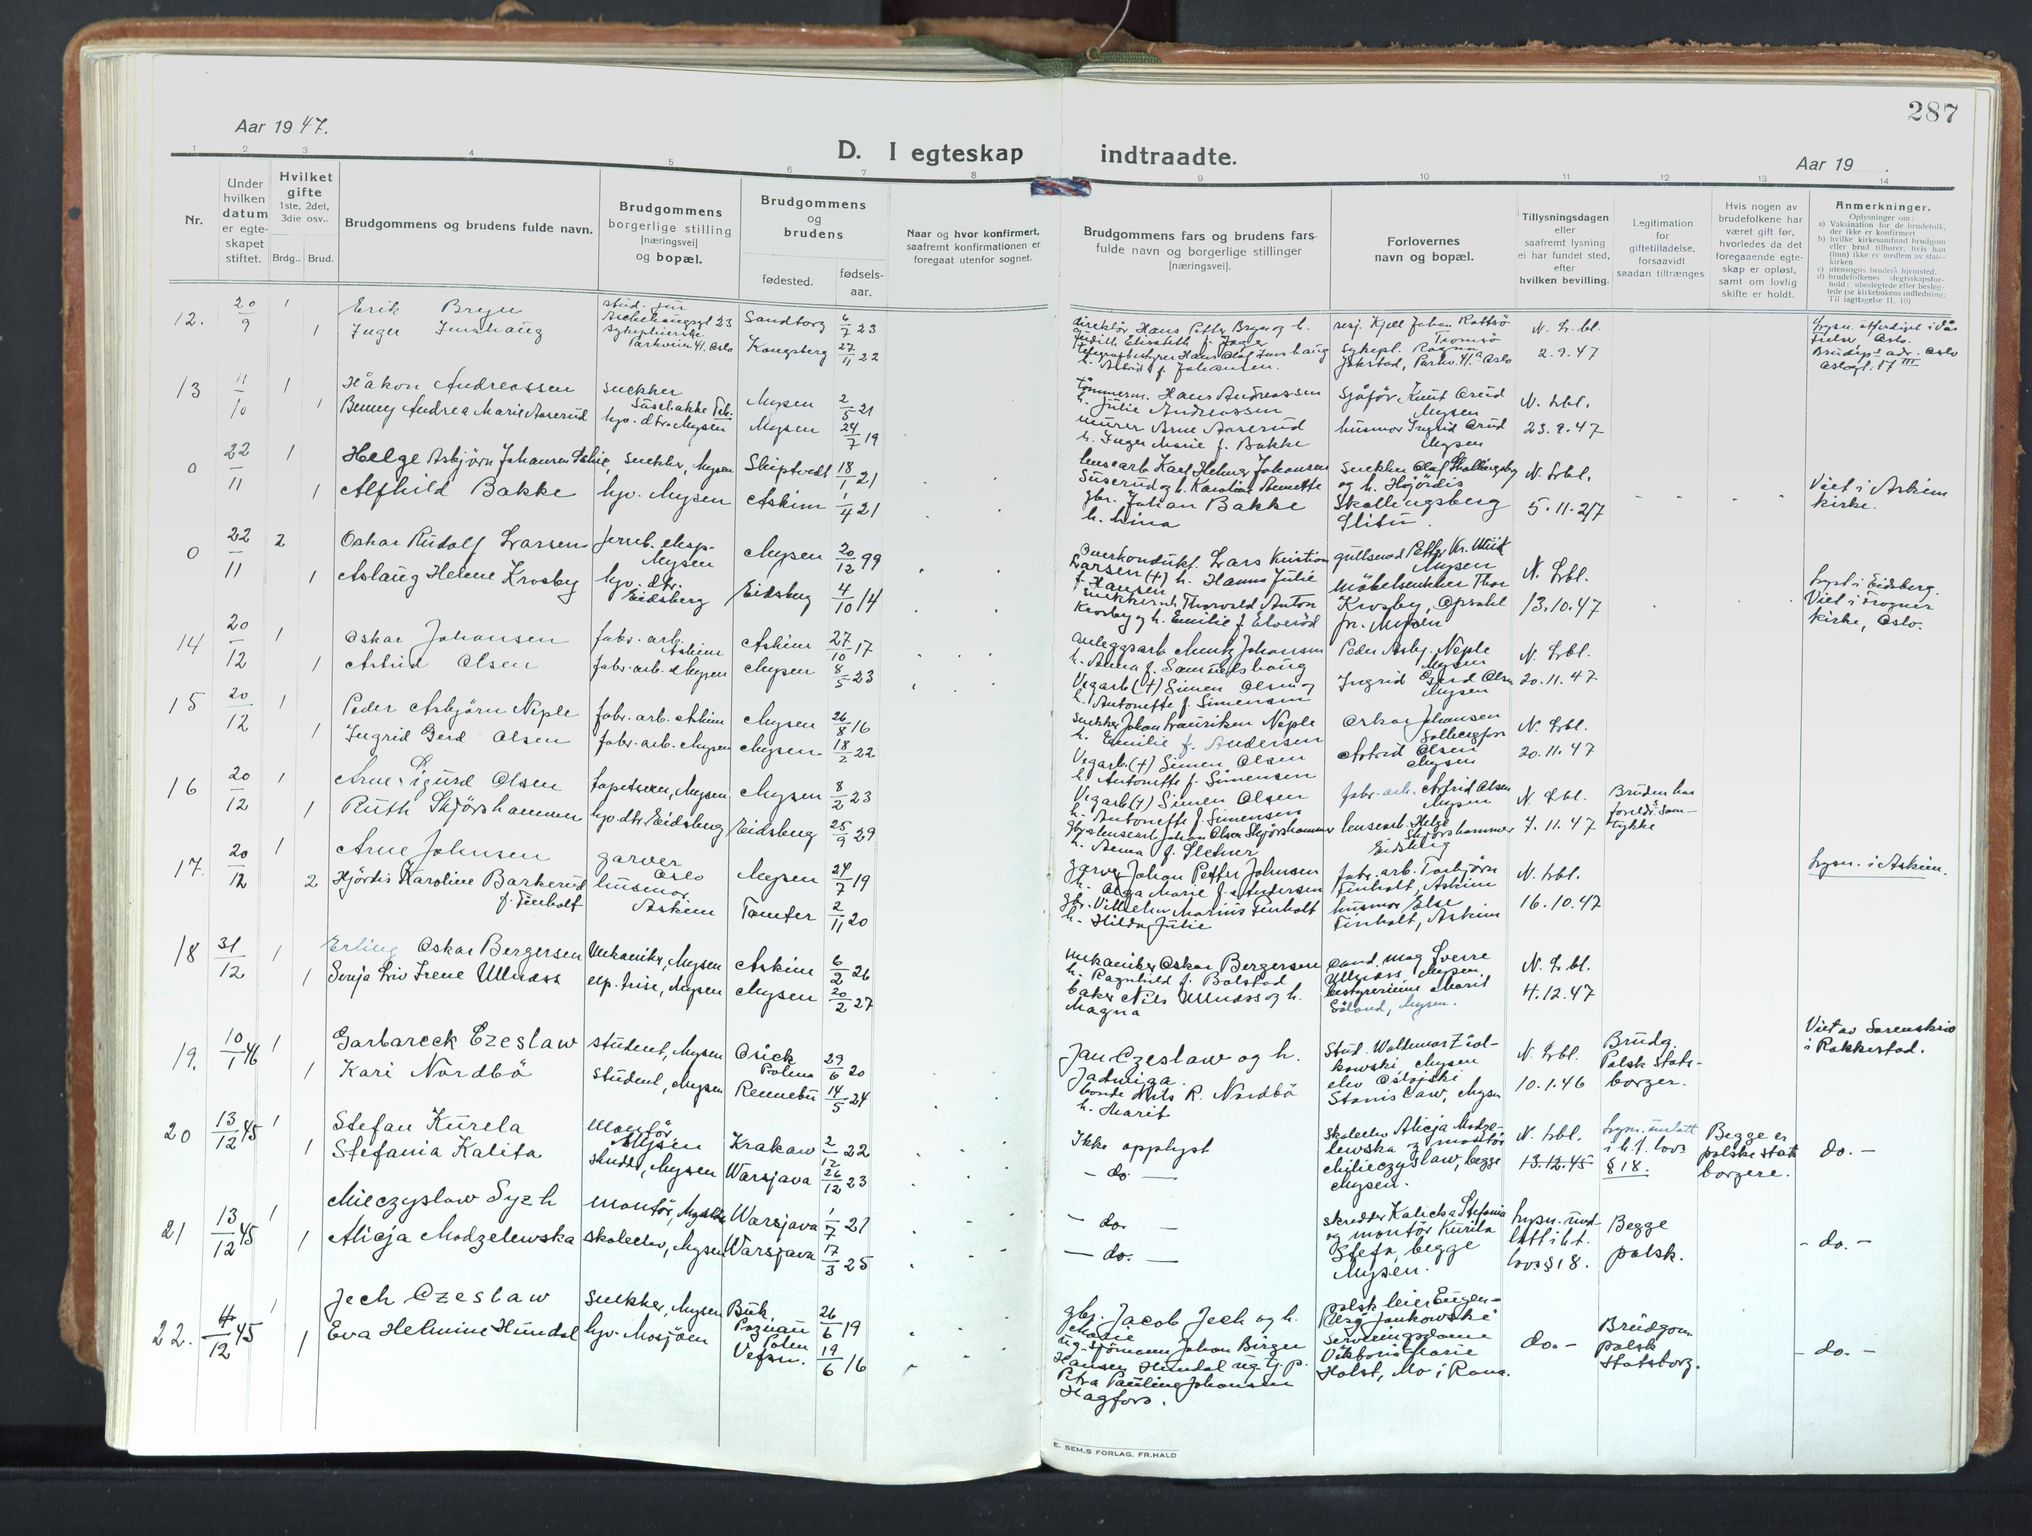 287
Aar 1947.
D. I egteskap indtraadte.
Aar 19 .
1 2 3 4 5 6 7 8 9 10 11 12 13 14
Nr.
Under hvilken datum er egteskapet stiftet.
Hvilket gifte 1ste, 2det, 3die osv..
Brdg.. Brud.
Brudgommens og brudens fulde navn.
Brudgommens borgerlige stilling [næringsvei] og bopæl.
Brudgommens og brudens
fødested.
fødsels-aar.
Naar og hvor konfirmert, saafremt konfirmationen er foregaat utenfor sognet.
Brudgommens fars og brudens fars fulde navn og borgerlige stillinger [næringsvei].
Forlovernes navn og bopæl.
Tillysningsdagen eller saafremt lysning ei har fundet sted, efter hvilken bevilling.
Legitimation for giftetilladelse, forsaavidt saadan tiltrænges.
Hvis nogen av brudefolkene har været gift før, hvorledes da det foregaaende egteskap er opløst, samt om lovlig skifte er holdt.
Anmerkninger.
Oplysninger om:
a) Vaksination for de brudefolk, der ikke er konfirmert
b) hvilke kirkesamfund brudgom eller brud tilhører, hvis han (hun) ikke er medlem av statskirken
c) utensogns bruders hjemsted.
d) brudefolkenes slegtsskapsforhold: ubeslegtede eller beslegtede (se kirkebokens indledning: Til iagttagelse II. 10)
12. 20/9 1 Erik Bryn stud. jur Sandborg 6/7 23
1 Inger Imshaug Parkveien 41. Oslo Kongsberg 27/11 22
direktör Hans Petter Bryn og h. Judith Elisabeth f.
h. Astrid f. Johansen.
N. Lbl. 2.9.47
13 11/10 1 Håkon Andreassen snekker Mysen 2/5 21
1 Benny Andrea Marie Aaserud hjv. dtr. Mysen Mysen 24/7 19
tömmerm. Hans Andreassen h. Julie Andreassen
murer Arne Aaserud h. Inger Marie f. Bakke
Sjåför Knut Mysen
husmor Ingrid Mysen
N. Lbl. 23.9.47
0 22/11 1 Helge Asbjörn Johansen snekker, Mysen Skiptvedt 18/1 21
1 Alfhild Bakke hjv. Mysen Askim 1/4 21
Karl Helmer Johansen Suserud og h. Karoline Annette
gbr. Johan Bakke h. Mina
snekker Olaf og h. Hjördis Skallingsberg Slitu.
N. Lbl. 5.11.47
Viet i Askim kirke.
0 22/11 2 Oskar Rudolf Larsen jernb. eksp. Mysen Mysen 20/12 99
1 Aslaug Helene Krosby hjv. dtr. Eidsberg Eidsberg 4/10 14
Overkondukt. Lars Kristian Larsen (+) h. Hanna Julie f. Hansen
snekkerm. Thorvald Anton Krosby og h. Emilie f. Elveröd
gullsmed Petter Kr. Mysen
Möbelsnekker Thor Krosby, Opsahl pr. Mysen
N. Lbl. 13.10.47
Lyst i Eidsberg. Viet i Frogner kirke, Oslo.
14 20/12 1 Oskar Johansen fabr. arb. Askim Askim 27/10 17
1 Astrid Olsen fabr. arb. Mysen Mysen 8/5 23
anleggsarb. Johansen h. Anna f. Samuelshaug
Vegarb. (+) Simen Olsen og h. Antonette f. Simensen
Peder Asbj. Neple Mysen
Ingrid Gerd Olsen Mysen
N. Lbl. 20.11.47
15 20/12 1 Peder Asbjörn Neple fabr. arb. Askim Mysen 26/8 16
1 Ingrid Gerd Olsen fabr. arb. Mysen Mysen 18/2 22
snekker Johan Lauritzen Neple h. Emilie f. Andersen
Vegarb. (+) Simen Olsen h. Antonette f. Simensen
Oskar Johansen
Astrid Olsen Mysen
N. Lbl. 20.11.47
16 20/12 1 Arne Sigurd Olsen tapetserer, Mysen Mysen 8/2 23
1 Ruth Skjörshammer hjv. dtr. Eidsberg Eidsberg 25/9 29
Vegarb. (+) Simen Olsen h. Antonette f. Simensen
Johan Olsen Skjörshammer h. Anna f. Sletner
fabr. arb. Astrid Olsen Mysen
Helge Skjörshammer Eidsberg
N. Lbl. 4.11.47
Bruden har foreldr.s samtykke
17. 20/12 1 Arne Johnsen garver Oslo Mysen 24/7 19
2 Hjördis Karoline Barkerud f. Finholt husmor Askim Tomter 2/11 20
garver Johan Petter Johnsen h. Olga Marie f. Andersen
gbr. Vilhelm Marius Finholt h. Hilda Julie
fabr. arb. Torbjörn Finholt, Askim
husmor Else Finholt, Askim
N. Lbl. 16.10.47
Lysn. i Askim.
18 31/12 1 Erling Oskar Bergersen Mekaniker, Mysen Askim 6/2 26
1 Sonja Liv Irene Ullnæss Mysen Mysen 20/2 27
mekaniker Oskar Bergersen h. Ragnhild f. Bolstad
baker Nils Ullnæss og h. Magna
cand. mag Sverre Ullnæss, Mysen
bestyrerinne Marit Söland, Mysen.
N. Lbl. 4.12.47
19. 10/1 46 1 Garbareck Czeslaw student, Mysen Osiek Polen 29/6 20
1 Kari Nordbö student, Mysen Rennebu 14/5 24
Jan Czeslaw og h. Jadwiga.
bonde Nils R. Nordbö h. Marit
Stud. Waldemar Ziolkowski Mysen
elev Ostojski Stanislaw, Mysen
N. Lbl. 10.1.46
Brudg. Polsk Statsborger.
Viet av Sorenskriv i Rakkestad.
20 13/12 45 1 Stefan Kurela montör Mysen Krakaw 2/12 22
1 Stefania Kalita Mysen Warsjava 26/12 23
Ikke opplyst
- do. -
skoleelev Alicja Modzelewska montör begge Mysen.
N. Lbl. 13.12.45
Lysn. unlatt i h.t. lovs § 18.
Begge er polske statsborgere.
do. -
21 13/12 45 1 Mieczyslaw Syzh montör, Mysen Warsjava 1/7 21
1 Alicja Modzelewska skoleelev, Mysen Warsjava 17/3 25
- do. -
- do. -
skredder Kalicka Stefania og montör Kurila Stefa, begge Mysen.
Lysn. undlatt i h.t. lovs § 18.
Begge polsk.
- do. -
22. 4/12 45 1 Jech Czeslaw snekker, Mysen Buk Poznan Polen 26/6 19
1 Eva Helmine Hundal hjv. Mosjöen Vefsn. 19/6 16
gbr. Jacob Jech og h. Marie
Johan Birger Hansen Hundal ug. tj. p. Petra Pauline Johansen Hagfors.
Jankowski
Serveringsdame Viktoria Marie Holst, Mo i Rana.
do. -
Brudgom polsk Statsborg.
- do. -
E. SEM.S FORLAG, FR.HALD